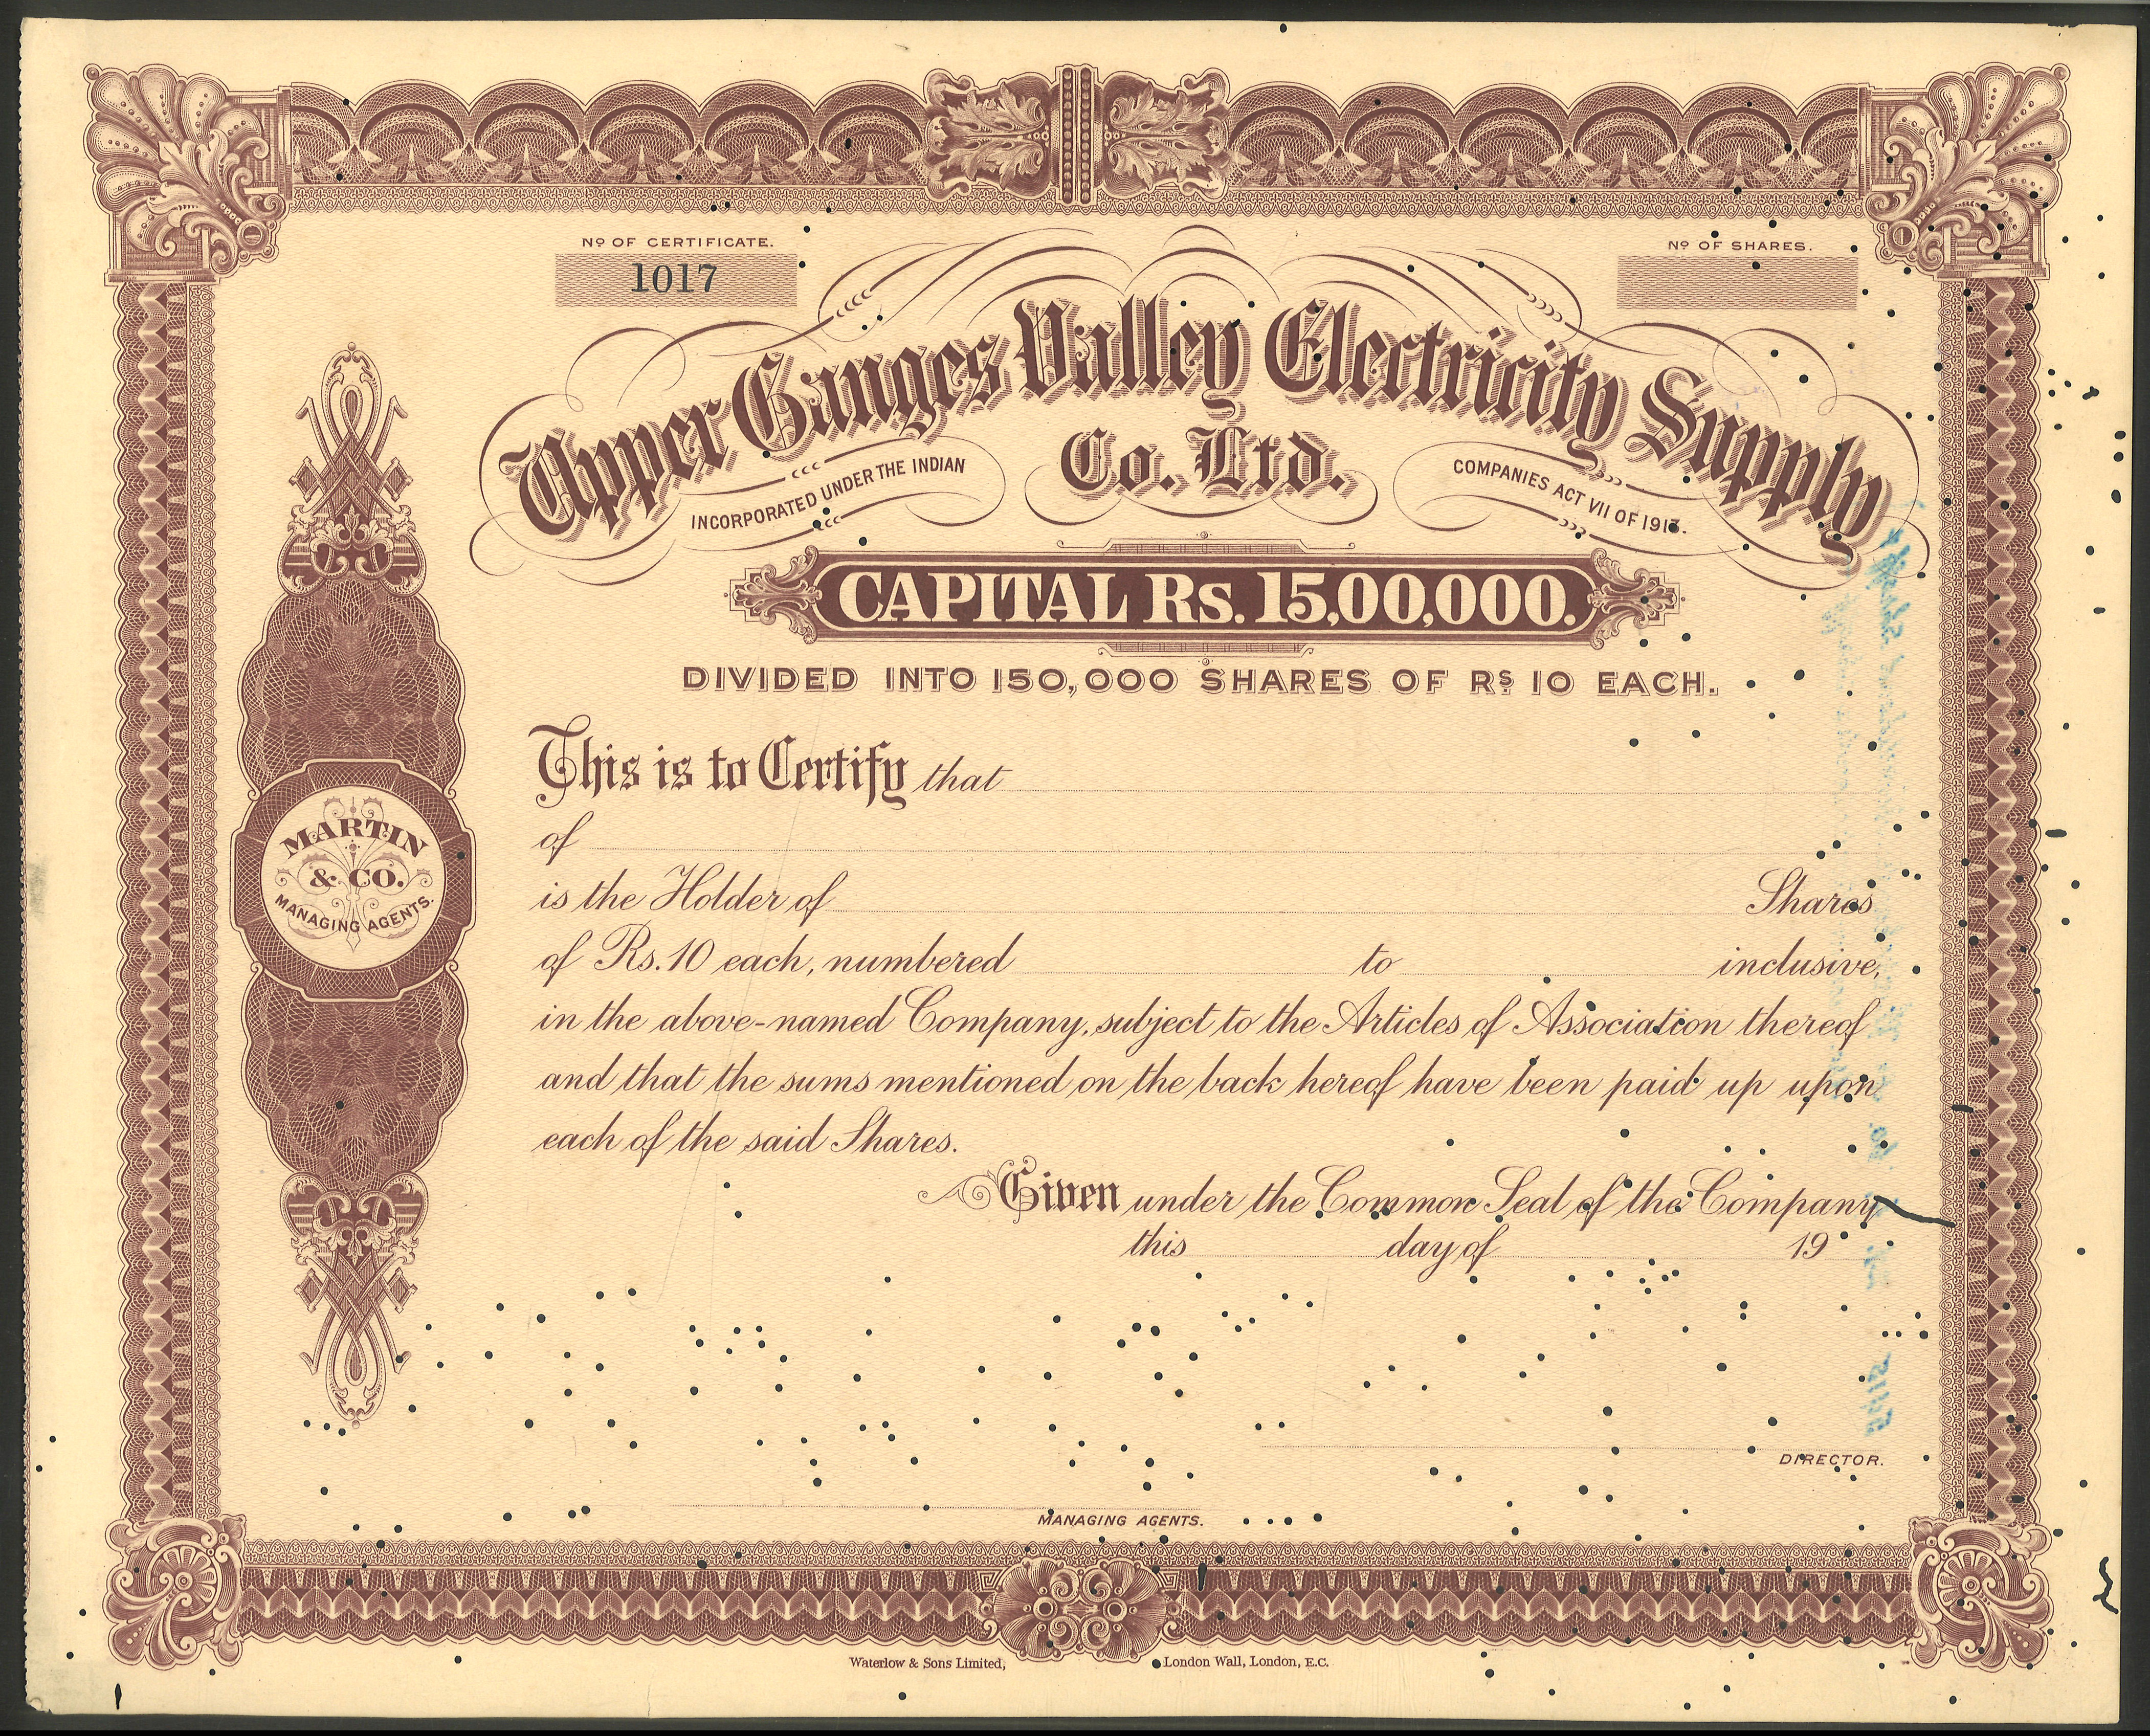 Nº OF CERTIFICATE.
1017
Nº OF SHARES.
Upper Ganges Valley Electricity Supply
Co., Ltd.
INCORPORATED UNDER THE INDIAN
COMPANIES ACT VII OF 1913.
CAPITAL Rs. 15,00,000.
DIVIDED INTO 150,000 SHARES OF Rs 10 EACH.
This is to Certify that
of
is the Holder of Shares
of Rs. 10 each, numbered to inclusive,
in the above-named Company, subject to the Articles of Association thereof
and that the sums mentioned on the back hereof have been paid up upon
each of the said Shares.
Given under the Common Seal of the Company
this day of 19
MARTIN
& CO.
MANAGING AGENTS.
DIRECTOR.
MANAGING AGENTS.
Waterlow & Sons Limited, London Wall, London, E.C.